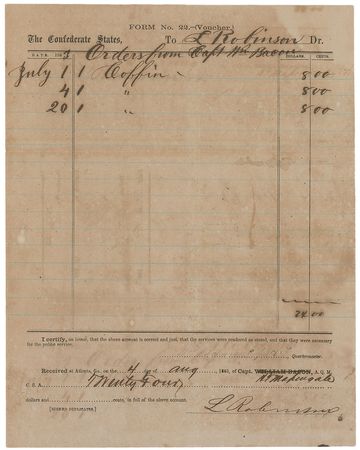 FORM No. 22.—(Voucher.)
The Confederate States, To L Robinson Dr.
DATE. 1863 Orders from Capt Wm Bacon DOLLARS. CENTS.
July 1 1 Coffin 8 00
4 1 " 8 00
20 1 " 8 00
24 00
I certify, on honor, that the above account is correct and just; that the services were rendered as stated, and that they were necessary for the public service.
Quartermaster.
Received at Atlanta, Ga., on the 4 day of Aug 1863, of Capt. WILLIAM BACON, A. Q. M.
C. S. A. Twenty Four
dollars and cents, in full of the above account.
[SIGNED DUPLICATES.] L Robinson